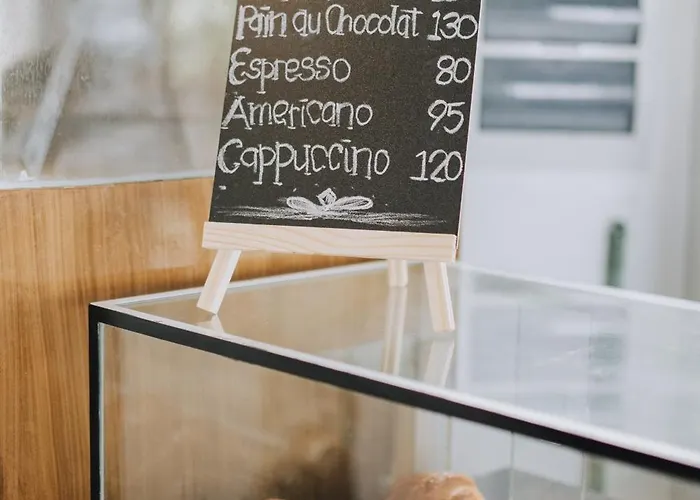 Pain au Chocolat 130
Espresso 80
Americano 95
Cappuccino 120